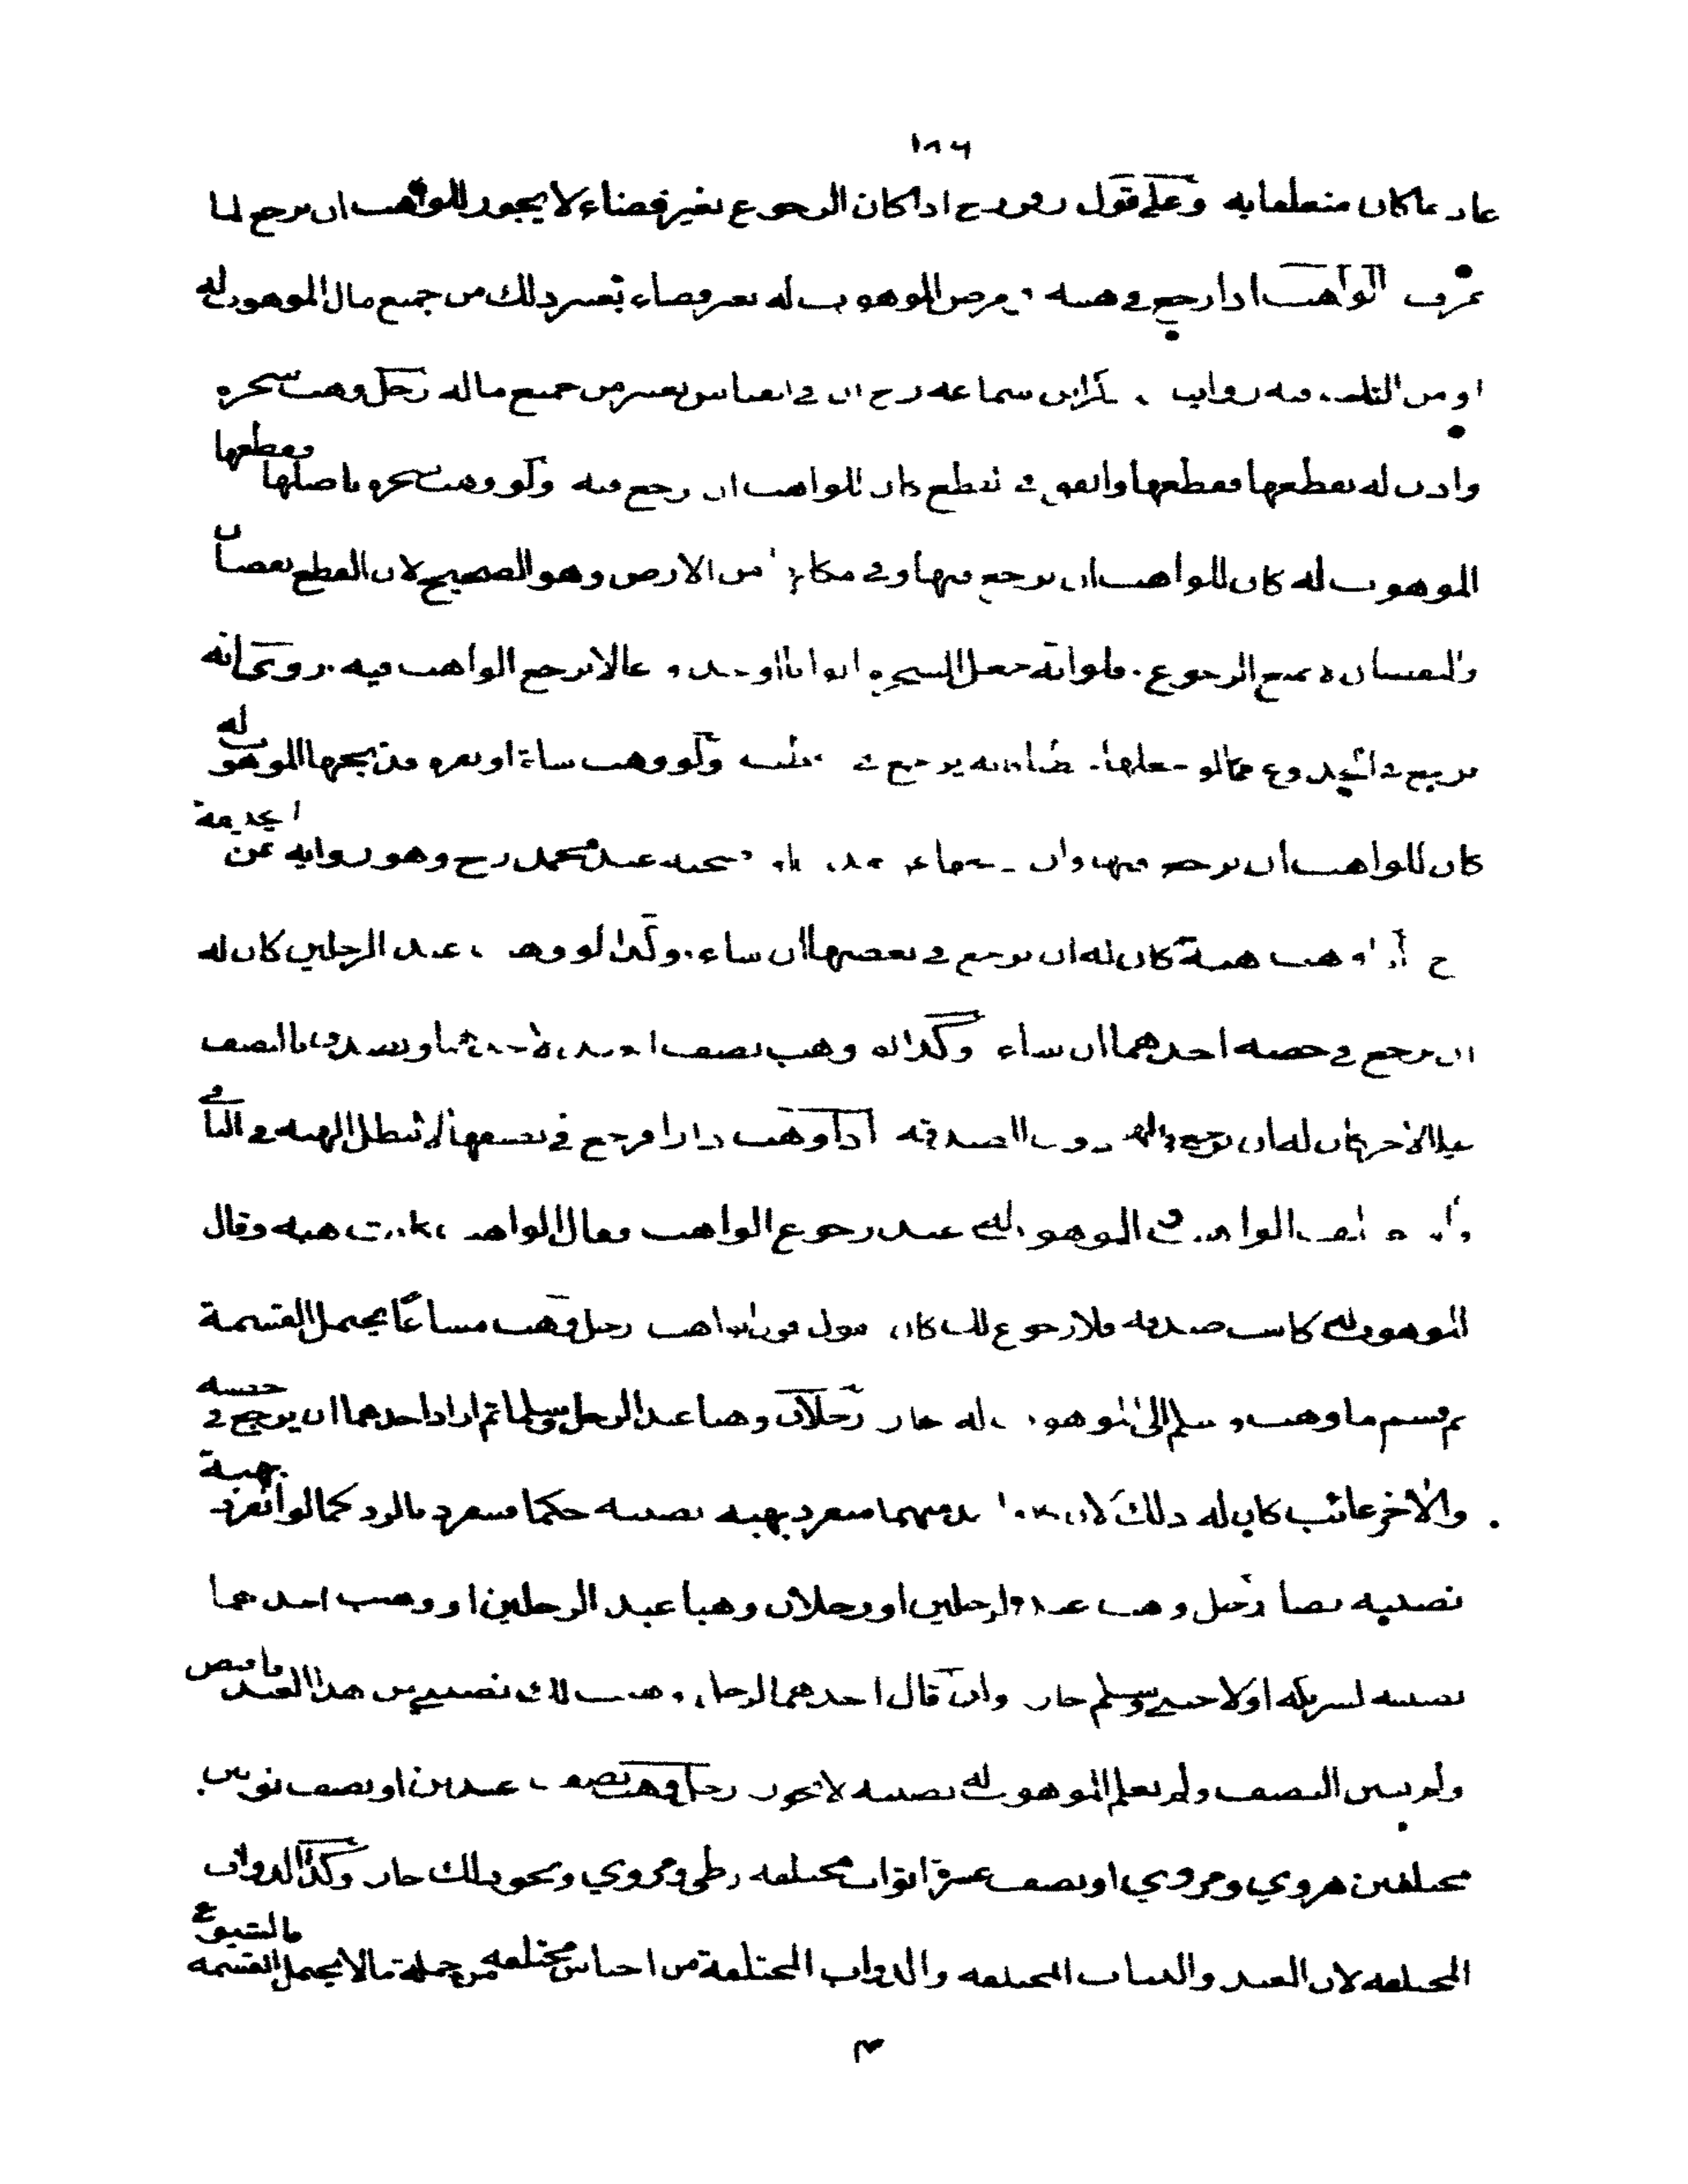 ١٨٦
عاد ما كان متعلقا به وعلى قول زفر رح اذا كان الرجوع بغير قضاء لا يجوز للواهب ان يرجع لما
عرف الواهب اذا رجع في هبته في مرض الموهوب له بغير قضاء يعتبر ذلك من جميع مال الموهوب له
او من الثلث فيه روايتان ذكر ابن سماعة رح ان في القياس يعتبر من جميع ماله رجل وهب شجرة
واذن له بقطعها فقطعها وانفق في القطع كان للواهب ان يرجع فيه ولو وهب شجرة باصلها فقطعها
الموهوب له كان للواهب ان يرجع فيها وفي مكانها من الارض وهو الصحيح لان القطع نقصان
والنقصان لا يمنع الرجوع فلو انه جعل الشجرة ابوابا او جذوعا لا يرجع الواهب فيه وروي انه
يرجع في الجذوع كما لو جعلها حطبا فانه يرجع في حطبه ولو وهب شاة او بقرة فذبحها الموهوب له
كان للواهب ان يرجع فيها وان عند محمد رح وهو رواية عن ابي حنيفة
رح اذا وهب هبة كان له ان يرجع في بعضها ان شاء وكذا لو وهب عبد الرجلين كان له
ان يرجع في حصة احدهما ان شاء وكذا له وهب نصف لاحدهما وتصدق بالنصف
على الاخر كان له ان يرجع في الهبة دون الصدقة اذا وهب دارا فرجع في نصفها لا تبطل الهبة في الباقي
الواهب والموهوب له عند رجوع الواهب فقال الواهب كانت هبة وقال
الموهوب له كانت صدقة فلا رجوع لك كان القول قول الواهب رجل وهب مشاعا يحتمل القسمة
ثم قسم ما وهب وسلم الى الموهوب له جاز رجلان وهبا عبدا لرجل وسلما ثم اراد احدهما ان يرجع في حصته
والاخر غائب كان له ذلك لان كل واحد منهما متفرد بهبة نصيبه حكما فيتفرد بالرد كما لو انفرد بهبة
نصيبه نصا رجل وهب عبده لرجلين او رجلان وهبا عبد الرجلين او وهب احدهما
نصيبه لشريكه او لاجنبي وسلم جاز وان قال احدهما لرجل وهبت لك نصيبي من هذا العبد فاقبض
ولم يبين النصف ولم يعلم الموهوب له نصيبه لا يجوز رجل وهب نصف عبدين او نصف ثوبين
مختلفين هروي ومروي او نصف عشرة اثواب مختلفة زطي ومروي ونحو ذلك جاز وكذا الدواب
المختلفة لان العبد والثياب المختلفة والدواب المختلفة من اجناس مختلفة من جملة ما لا يحتمل القسمة بالشيوع